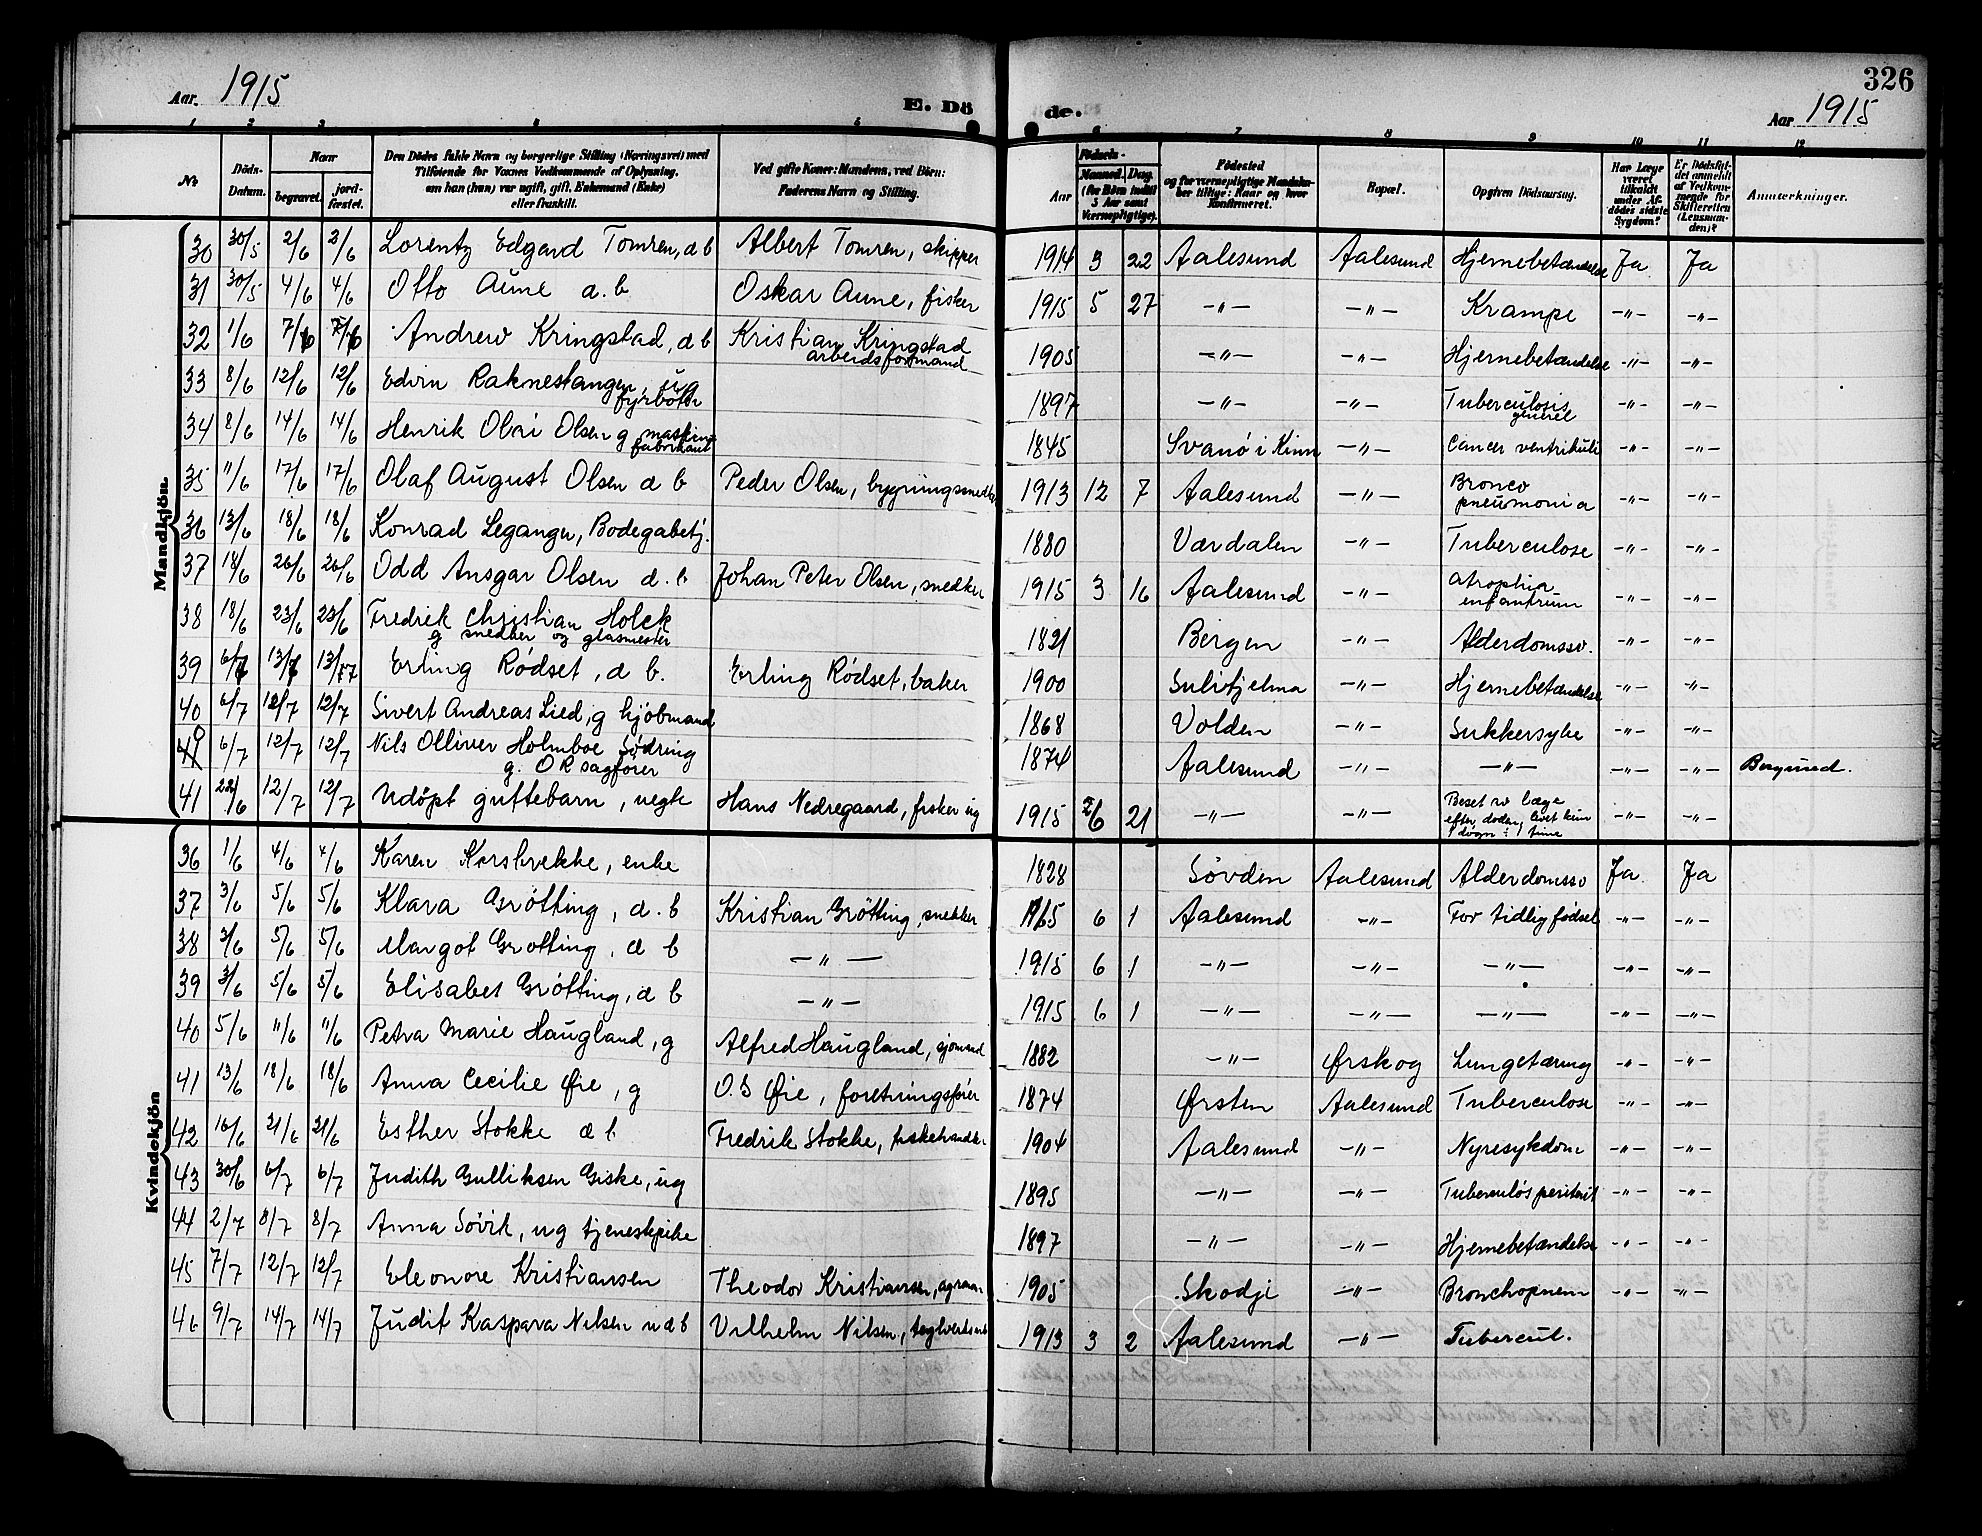 326
Aar. 1915 E. Dö de. Aar 1915
1 2 3 4 5 6 7 8 9 10 11 12
No Døds-Datum. Naar begravet. jordfæstet. Den Dödes fulde Navn og borgerlige Stilling (Næringsvei) med Tilføiende for Voxnes Vedkommende af Oplysning, om han (hun) var ugift, gift, Enkemand (Enke) eller fraskilt. Ved gifte Koner: Mandens, ved Börn: Faderens Navn og Stilling. Fødsels- Aar Maaned. Dag. (for Børn indtil 5 Aar samt Værnepligtige). Födested og for værnepligtige Mandskaber tillige: Naar og hvor konfirmeret. Bopæl. Opgiven Dødsaarsag. Har Læge været tilkaldt under Afdødes sidste Sygdom? Er Dødsfaldet anmeldt af Vedkommende for Skifteretten (Lensmanden)? Anmerkninger.
Mandkjön.
30 30/5 2/6 2/6 Lorentz Edgard Tomren, d b Albert Tomren, skipper 1914 3 22 Aalesund Aalesund Hjernebetændelse Ja Ja
31 30/5 4/6 4/6 Otto Aune d. b Oskar Aune, fisker 1915 5 27 -"- -"- Krampe -"- -"-
32 1/6 7/6 7/6 Andrew Kringstad, d b Kristian Kringstad arbeidsformand 1905 -"- -"- Hjernebetændelse -"- -"-
33 8/6 12/6 12/6 Edvin Raknestangen, ug fyrbøter 1897 -"- -"- Tuberculosis generel -"- -"-
34 8/6 14/6 14/6 Henrik Olsen g maskinfabrikant 1845 Svanø i Kinn -"- Cancer ventrikuli -"- -"-
35 11/6 17/6 17/6 Olaf August Olsen d b Peder Olsen, bygningssnedker 1913 12 7 Aalesund -"- Bronco pneumonia -"- -"-
36 13/6 18/6 18/6 Konrad Leganger, Bodegabetj. 1880 Værdalen -"- Tuberculose -"- -"-
37 18/6 26/6 26/6 Odd Ansgar Olsen d. b Johan Peter Olsen, snedker 1915 3 16 Aalesund -"- atrophia enfantrum -"- -"-
38 18/6 23/6 23/6 Fredrik Christian Holck g snedker og glasmester 1821 Bergen -"- Alderdomssv. -"- -"-
39 6/7 13/7 13/7 Erling Rødset, d b. Erling Rødset, baker 1900 Sulitjelma -"- Hjernebetændelse -"- -"-
40 6/7 12/7 12/7 Sivert Andreas Lied, g kjøbmand 1868 Volden -"- Sukkersyke -"- -"-
6/7 12/7 12/7 Nils Olliver Holmboe Sødring g. O R sagfører 1874 Aalesund -"- -"- -"- -"- Borgund.
41 22/6 12/7 12/7 Udöpt guttebarn, uegte Hans Nedregaard, fisker ug 1915 6 21 -"- -"- Beset av læge efter døden, livet kun 1 døgn 1 time -"- -"-
Kvindekjön
36 1/6 4/6 4/6 Karen Korsbrekke, enke 1828 Søvden Aalesund Alderdomssv Ja Ja
37 3/6 5/6 5/6 Klara Grøtting, d. b Kristian Grøtting, snekker 1915 6 1 Aalesund -"- For tidlig fødsel -"- -"-
38 3/6 5/6 5/6 Margot Grøtting, d b -"- 1915 6 1 -"- -"- -"- -"- -"-
39 3/6 5/6 5/6 Elisabet Grøtting, d b -"- 1915 6 1 -"- -"- -"- -"- -"-
40 5/6 11/6 11/6 Petra Marie Haugland, g Alfred Haugland, sjømand 1882 -"- Ørskog Lungetæring -"- -"-
41 13/6 18/6 18/6 Anna Cecilie Øie, g O. S Øie, forretningsfører 1874 Ørsten Aalesund Tuberculose -"- -"-
42 16/6 21/6 21/6 Esther Stokke d b Fredrik Stokke, fiskehandler 1904 Aalesund -"- Nyresykdom -"- -"-
43 30/6 6/7 6/7 Judith Gulliksen Giske, ug 1895 -"- -"- Tuberculøs peritonit -"- -"-
44 2/7 8/7 8/7 Anna Søvik, ug tjenestepike 1897 -"- -"- Hjernebetændelse -"- -"-
45 7/7 12/7 12/7 Eleonore Kristiansen Theodor Kristiansen, 1905 Skodje -"- Bronchopneum -"- -"-
46 9/7 14/7 14/7 Judit Kaspara Nilsen u d b Vilhelm Nilsen, 1913 3 2 Aalesund -"- Tubercul.